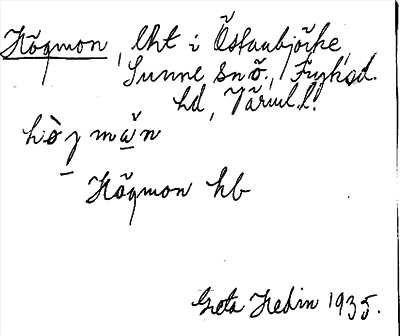 Högmon, lht i Östanbjörke,
Sunne sn ö., Fryksd.
hd, Värml l.
hòg mǎn
Högmon hb
Greta Hedin 1935.